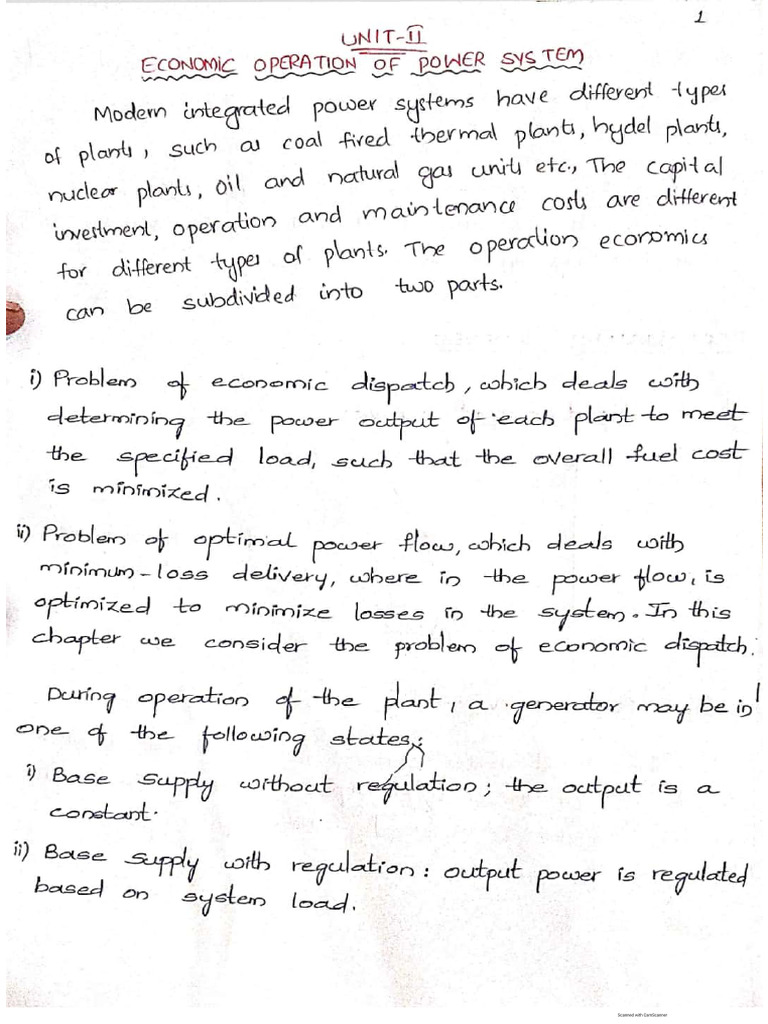 1
UNIT-II
ECONOMIC OPERATION OF POWER SYSTEM
Modern integrated power systems have different types
of plants, such as coal fired thermal plants, hydel plants,
nuclear plants, oil and natural gas units etc., The capital
investment, operation and maintenance costs are different
for different types of plants. The operation economics
can be subdivided into two parts.
i) Problem of economic dispatch, which deals with
determining the power output of each plant to meet
the specified load, such that the overall fuel cost
is minimized.
ii) Problem of optimal power flow, which deals with
minimum-loss delivery, where in the power flow, is
optimized to minimize losses in the system. In this
chapter we consider the problem of economic dispatch.
During operation of the plant, a generator may be in
one of the following states:
i) Base supply without regulation; the output is a
constant.
ii) Base supply with regulation: output power is regulated
based on system load.
Scanned with CamScanner